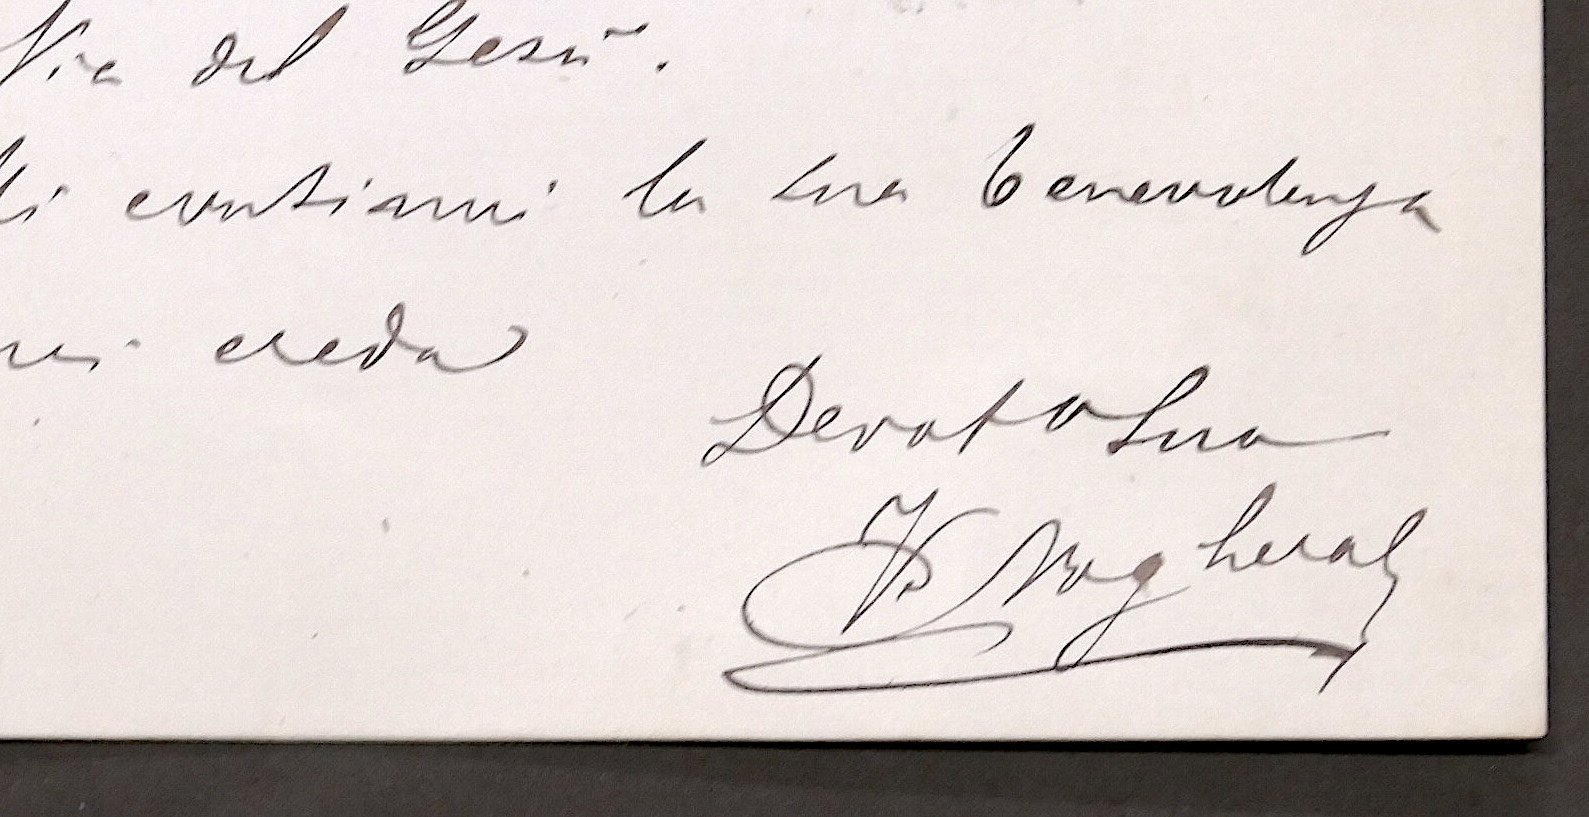 Via del Gesù.
Mi continui la sua benevolenza
mi creda
Devoto Suo